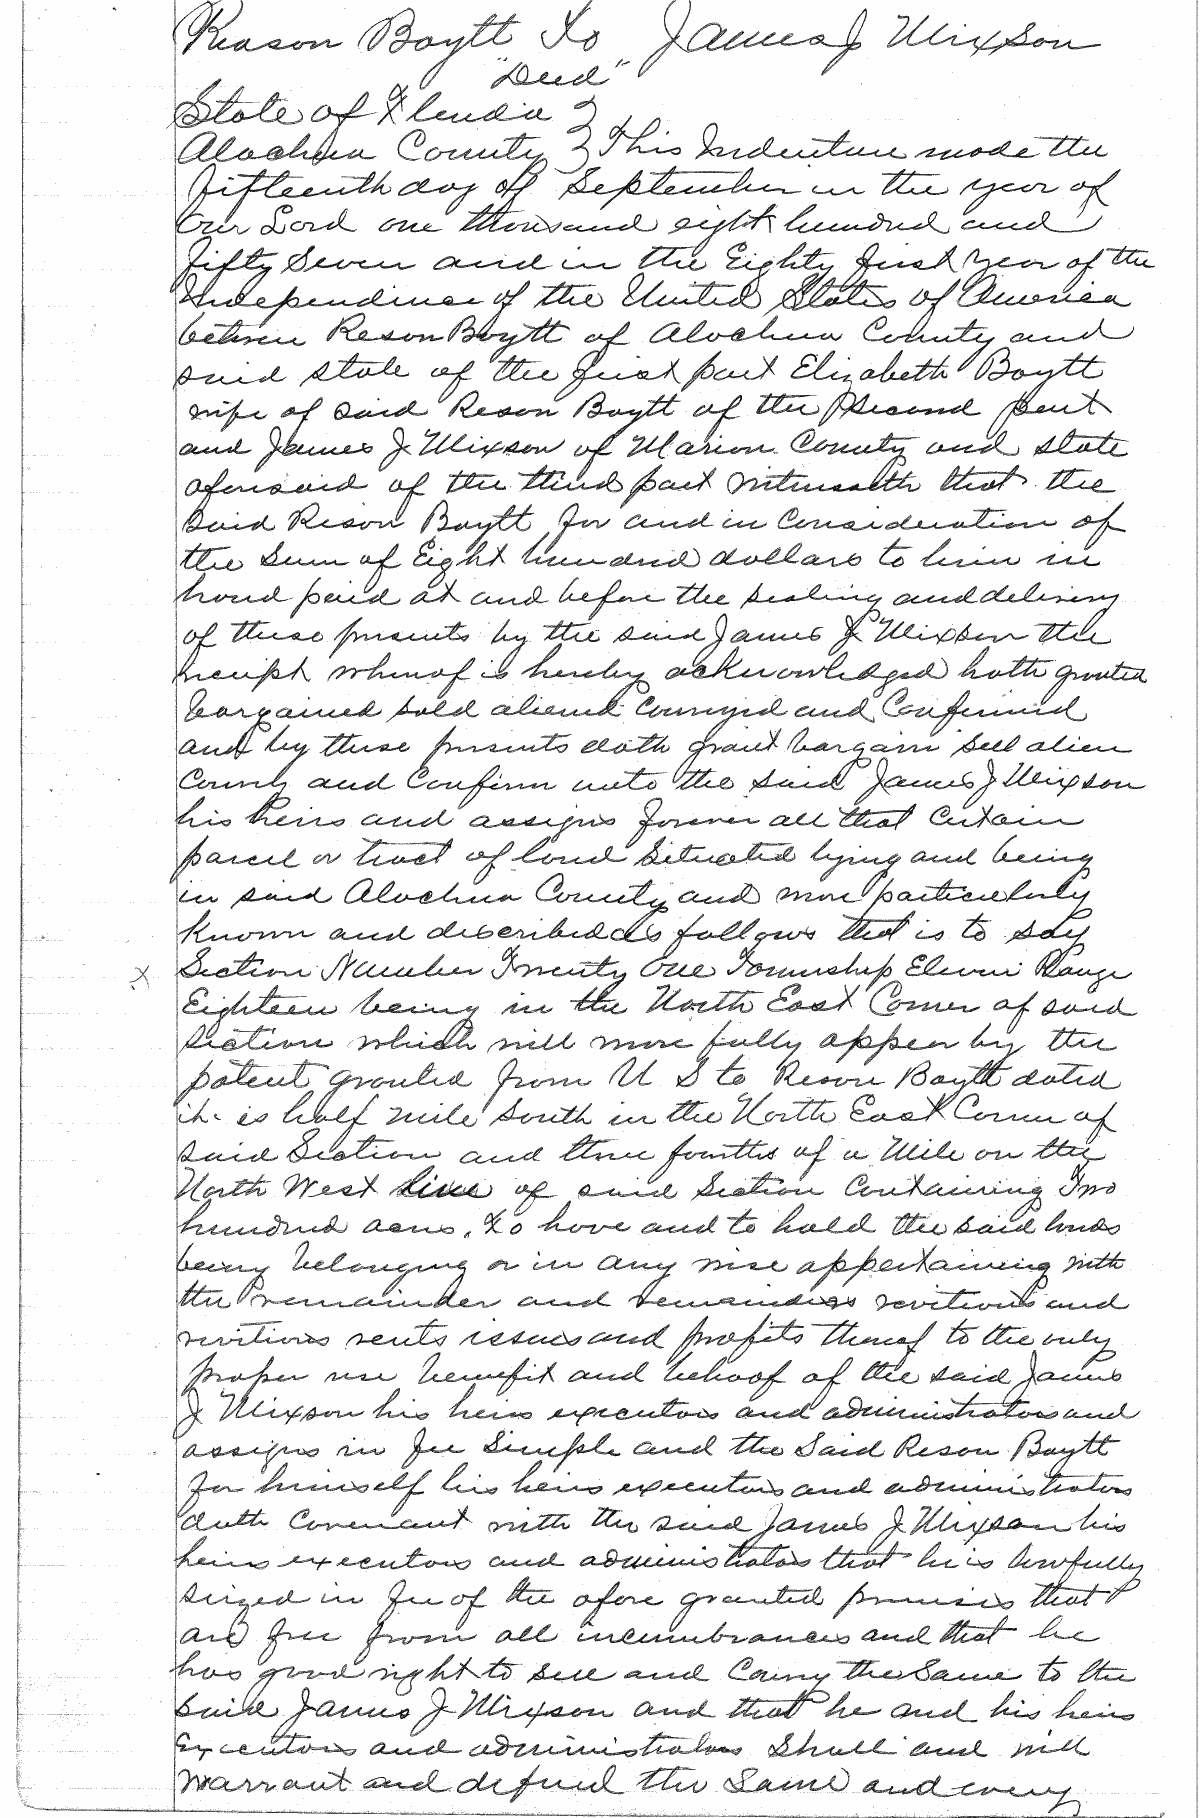 Reason Boytt To James J Mixson
"Deed"
State of Florida }
Alachua County } This Indenture made the
fifteenth day of September in the year of
Our Lord one thousand eight hundred and
fifty Seven and in the Eighty first year of the
Independence of the United States of America
between Reson Boytt of Alachua County and
said state of the first part Elizabeth Boytt
wife of said Reson Boytt of the second part
and James J Mixson of Marion County and state
aforesaid of the third part witnesseth that the
said Reson Boytt for and in Consideration of
the sum of Eight hundred dollars to him in
hand paid at and before the sealing and delivery
of these presents by the said James J Mixson the
receipt whereof is hereby acknowledged hath granted
bargained sold aliened conveyed and Confirmed
and by these presents doth grant bargain sell alien
Convey and Confirm unto the said James J Mixson
his heirs and assigns forever all that certain
parcel or tract of land Situated lying and being
in said Alachua County and more particularly
Known and described as follows that is to say
x Section Number Twenty One Township Eleven Range
Eighteen being in the North East Corner of said
Section which will more fully appear by the
patent granted from U S to Reson Boytt dated
it is half mile South in the North East Corner of
said Section and three fourths of a Mile on the
North West line of said Section Containing Two
hundred acres. To have and to hold the said lands
being belonging or in any wise appertaining with
the remainder and remainders revitions and
revitions rents issues and profits thereof to the only
proper use benefit and behoof of the said James
J Mixson his heirs executors and administrators and
assigns in fee Simple and the Said Reson Boytt
for himself his heirs executors and administrators
doth Covenant with the said James J Mixson his
heirs executors and administrators that he is lawfully
seized in fee of the afore granted premises that
are free from all incumbrances and that he
has good right to sell and Convey the Same to the
said James J Mixson and that he and his heirs
Executors and administrators Shall and will
warrant and defend the Same and every